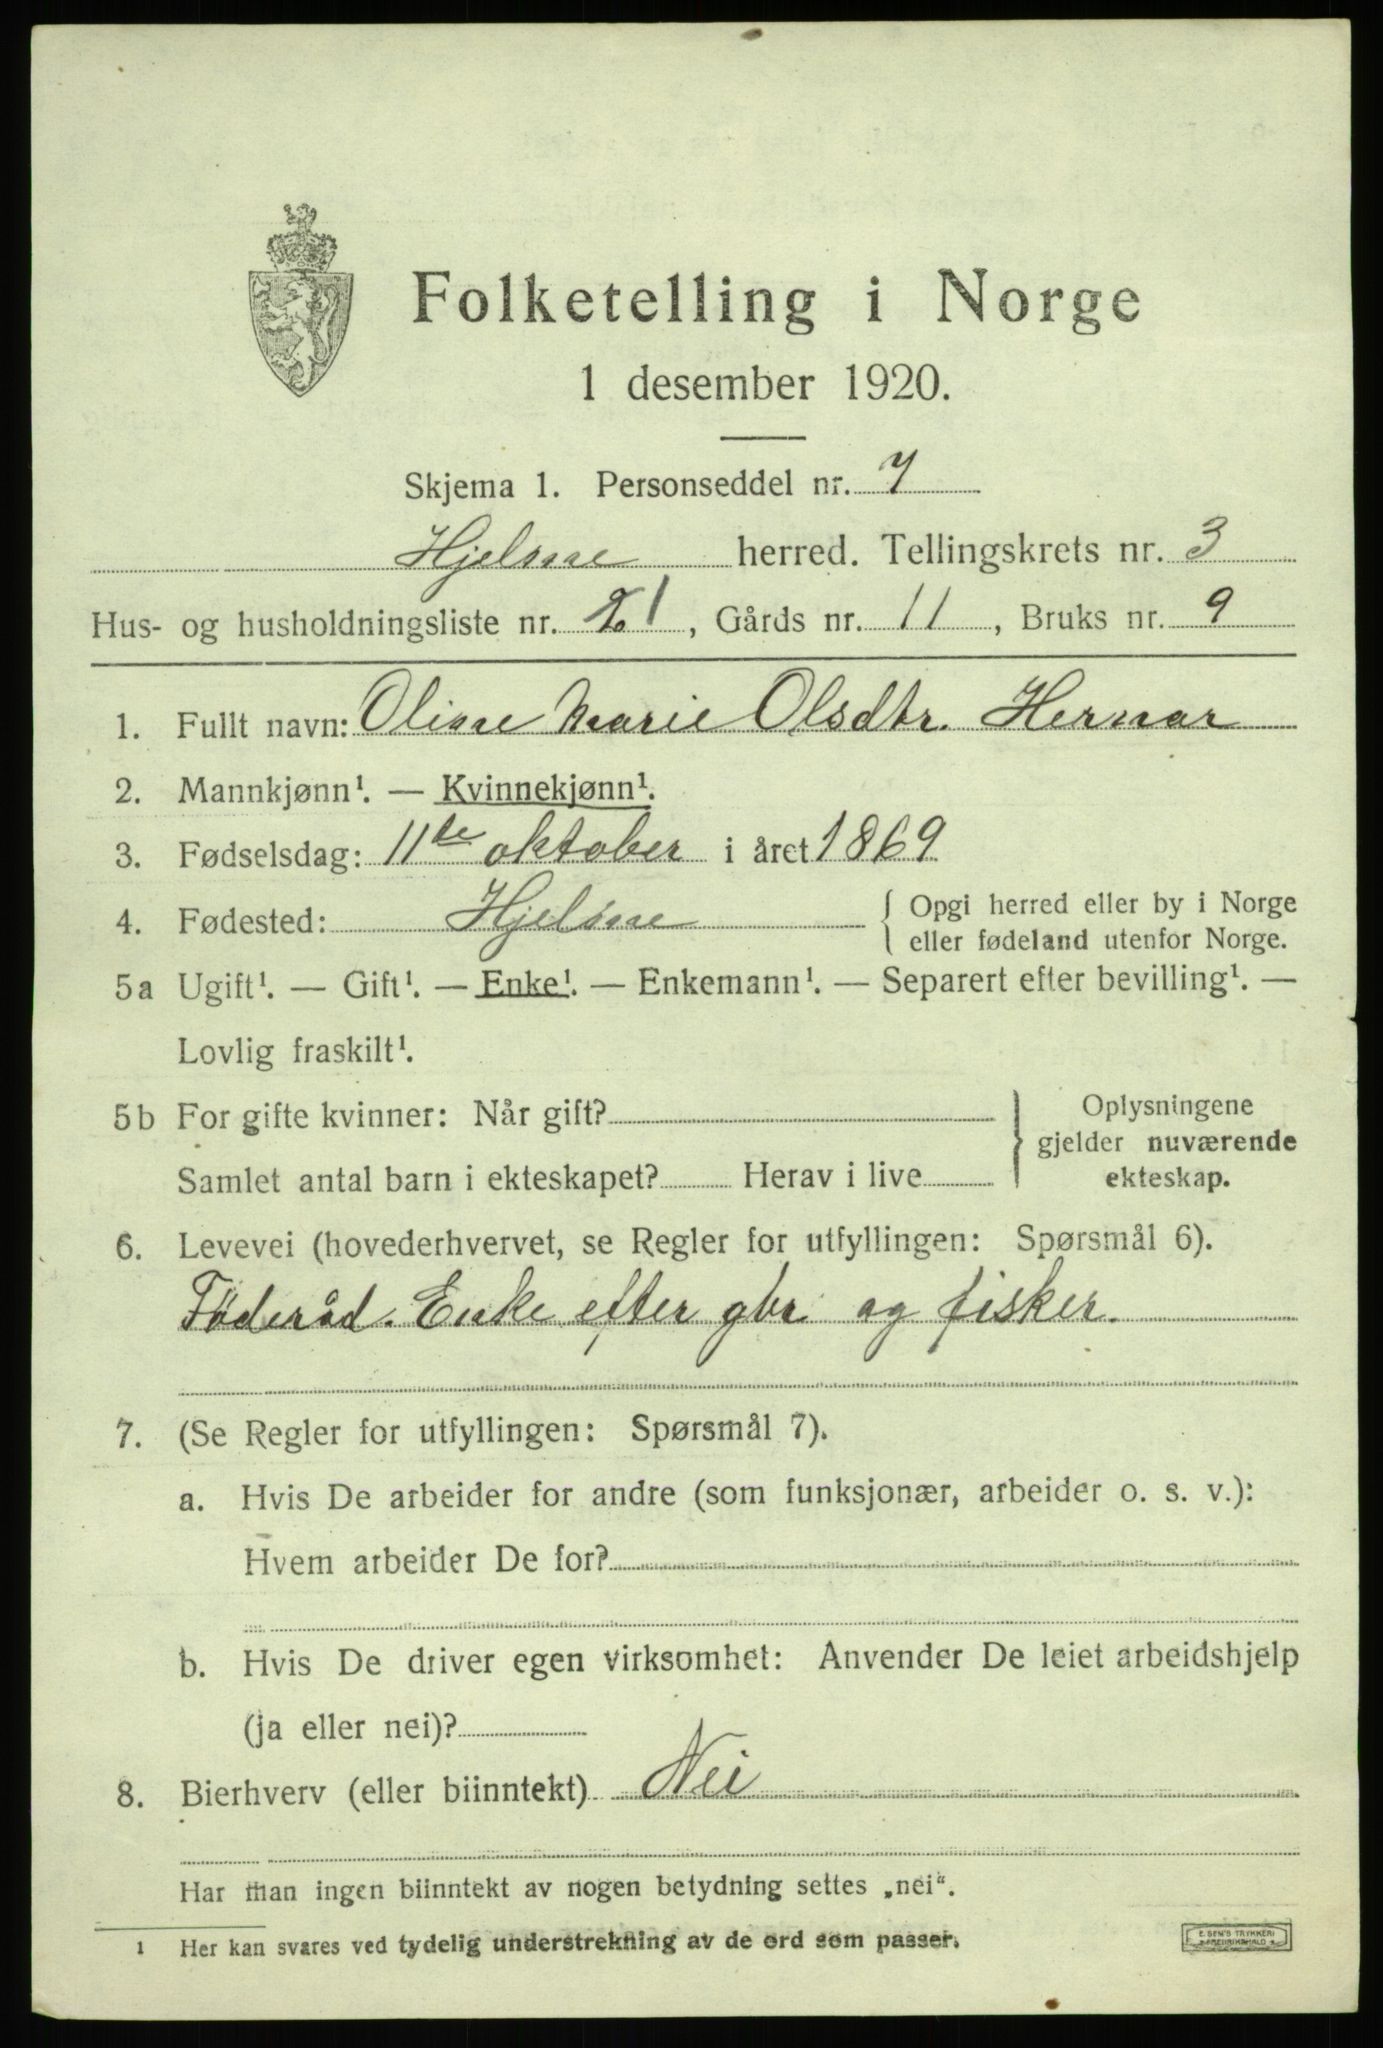 Folketelling i Norge
1 desember 1920.
Skjema 1. Personseddel nr. 7
Hjelme herred. Tellingskrets nr. 3
Hus- og husholdningsliste nr. 21, Gårds nr. 11, Bruks nr. 9
1. Fullt navn: Oline Marie Olsdtr. Hernar
2. Mannkjønn¹. — Kvinnekjønn¹.
3. Fødselsdag: 11te oktober i året 1869
4. Fødested: Hjelme { Opgi herred eller by i Norge
eller fødeland utenfor Norge.
5a Ugift¹. — Gift¹. — Enke¹. — Enkemann¹. — Separert efter bevilling¹. —
Lovlig fraskilt¹.
5b For gifte kvinner: Når gift? } Oplysningene
gjelder nuværende
Samlet antal barn i ekteskapet? Herav i live ekteskap.
6. Levevei (hovederhvervet, se Regler for utfyllingen: Spørsmål 6).
Føderåd. Enke efter gbr. og fisker.
7. (Se Regler for utfyllingen: Spørsmål 7).
a. Hvis De arbeider for andre (som funksjonær, arbeider o. s. v.):
Hvem arbeider De for?
b. Hvis De driver egen virksomhet: Anvender De leiet arbeidshjelp
(ja eller nei)?
8. Bierhverv (eller biinntekt) Nei
Har man ingen biinntekt av nogen betydning settes „nei".
¹ Her kan svares ved tydelig understrekning av de ord som passer.
E. SEM'S TRYKKERI
FREDRIKSHALD